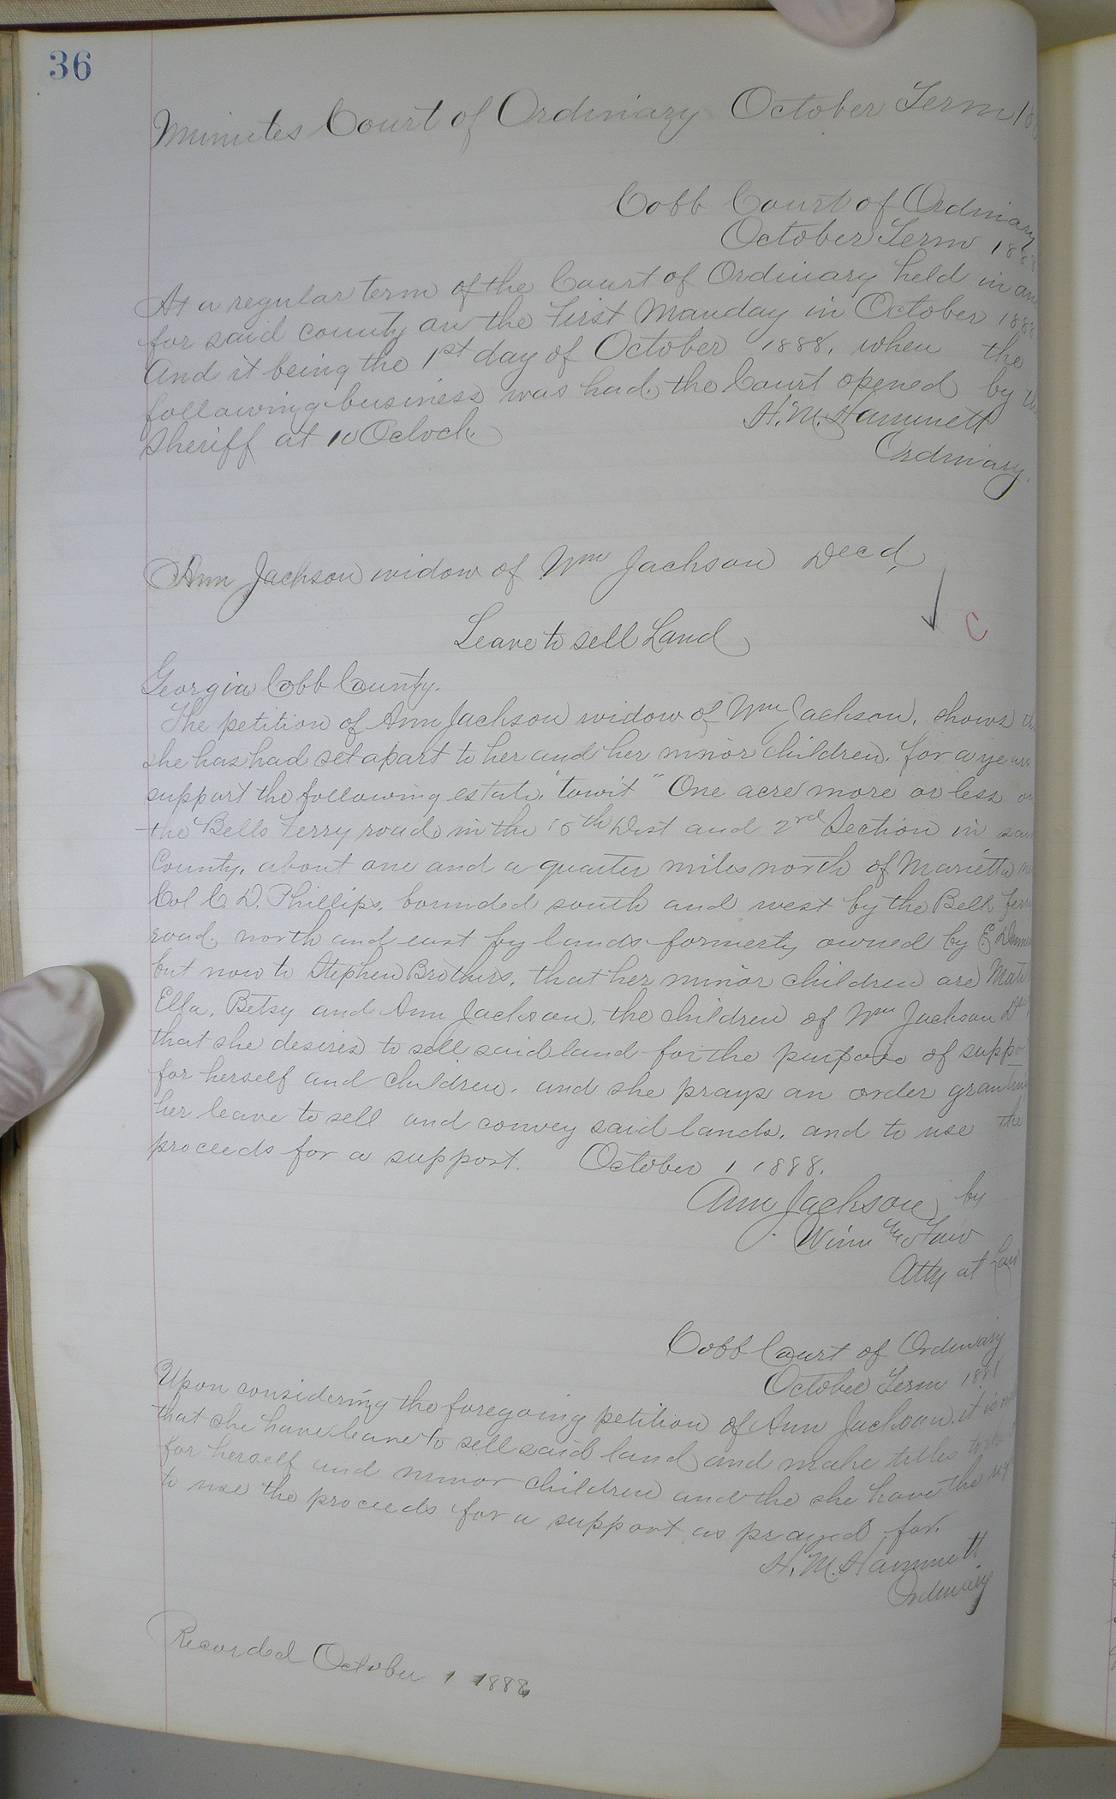 36
Minutes Court of Ordinary October Term 18
Cobb Court of Ordinary
October Term 188
At a regular term of the Court of Ordinary held in an
for said county on the first Monday in October 188
And it being the 1st day of October 1888, when the
following business was had, the Court opened by
Sheriff at 10 Oclock
H. M. Hammett
Ordinary.
Ann Jackson widow of Wm Jackson Decd
C
Leave to sell Land
Georgia Cobb County.
The petition of Ann Jackson widow of Wm Jackson, shows
she has had set apart to her and her minor children, for a years
support the following estate, "towit" One acre more or less on
the Bells Ferry road in the 16th Dist and 2nd Section in
County, about one and a quarter miles north of Marietta
Col C D. Phillips, bounded south and west by the Bell
road, north and east by lands formerly owned by E
but now to Stephen Brothers, that her minor children are
Ella, Betsy and Ann Jackson, the children of Wm Jackson
that she desires to sell said land for the purpose of suppo
for herself and children, and she prays an order
her leave to sell and convey said lands, and to use the
proceeds for a support. October 1 1888.
Ann Jackson by
Winn
Atty at Law
Cobb Court of Ordinary
October Term 188
Upon considering the foregoing petition of Ann Jackson, it is
that she have leave to sell said land and make titles
for herself and minor children and the she have the
to use the proceeds for a support as prayed for.
H. M. Hammett
Ordinary
Recorded October 1 1888